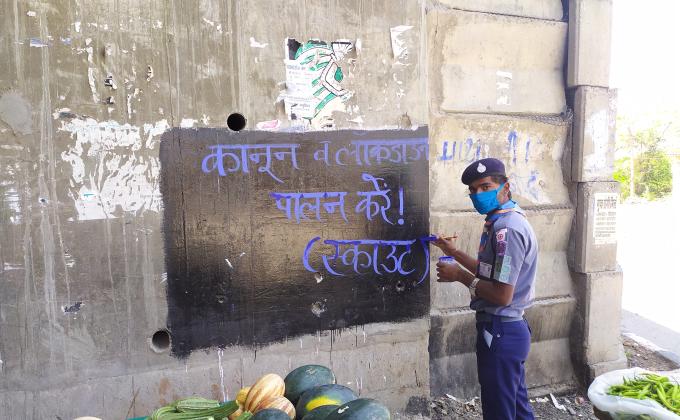 कानून व लाकडाउन
पालन करें!
(स्काउट)